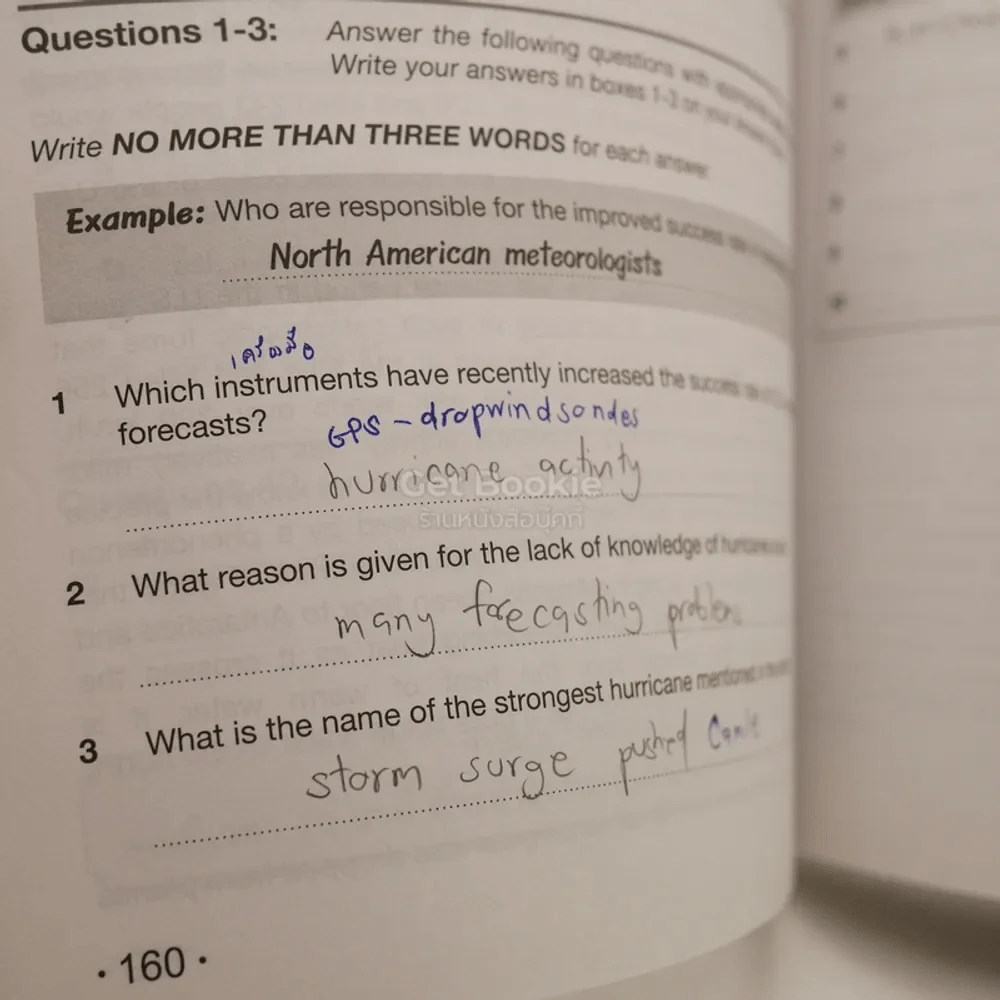 Questions 1-3: Answer the following questions with
Write your answers in boxes 1-3 on your answer
Write NO MORE THAN THREE WORDS for each answer
Example: Who are responsible for the improved success rate
North American meteorologists
เครื่องมือ
1 Which instruments have recently increased the success rate
forecasts?
GPS - dropwindsondes
hurricane activity
Get Bookie
ร้านหนังสือบุ๊คกี้
2 What reason is given for the lack of knowledge of hurricanes
many forecasting problems
3 What is the name of the strongest hurricane mentioned
storm surge pushed
· 160 ·